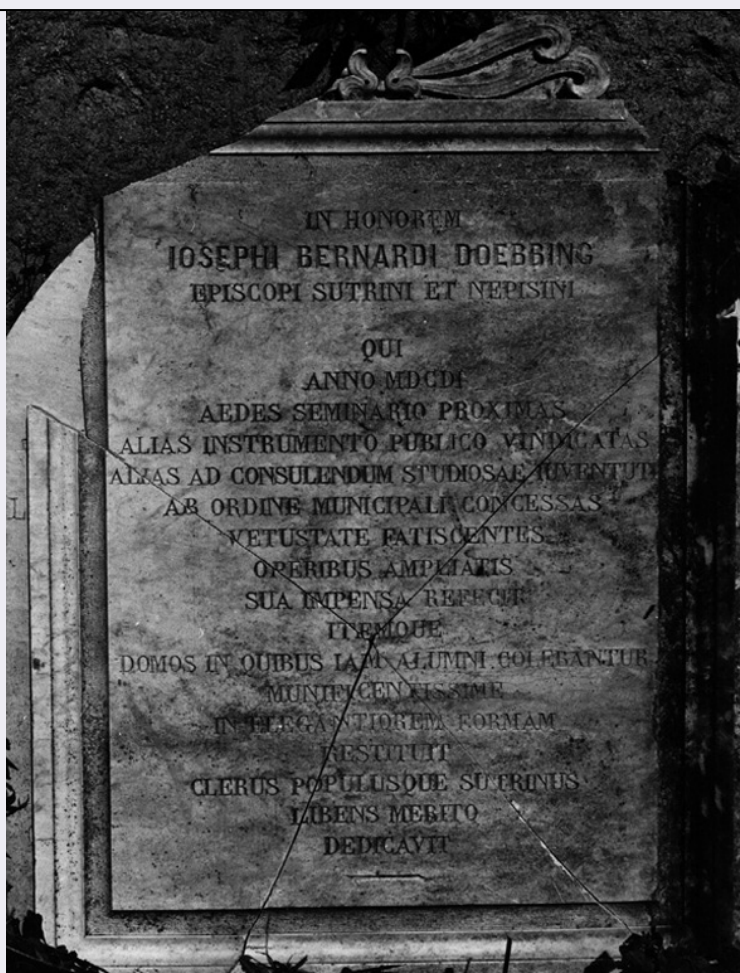 IN HONOREM
IOSEPHI BERNARDI DOEBBING
EPISCOPI SUTRINI ET NEPISINI
QUI
ANNO MDCDI
AEDES SEMINARIO PROXIMAS
ALIAS INSTRUMENTO PUBLICO VINDICATAS
ALIAS AD CONSULENDUM STUDIOSAE IUVENTUTI
AB ORDINE MUNICIPALI CONCESSAS
VETUSTATE FATISCENTES
OPERIBUS AMPLIATIS
SUA IMPENSA REFECIT
ITEMQUE
DOMOS IN QUIBUS IAM ALUMNI COLEBANTUR
MUNIFICENTISSIME
IN ELEGANTIOREM FORMAM
RESTITUIT
CLERUS POPULUSQUE SUTRINUS
LIBENS MERITO
DEDICAVIT